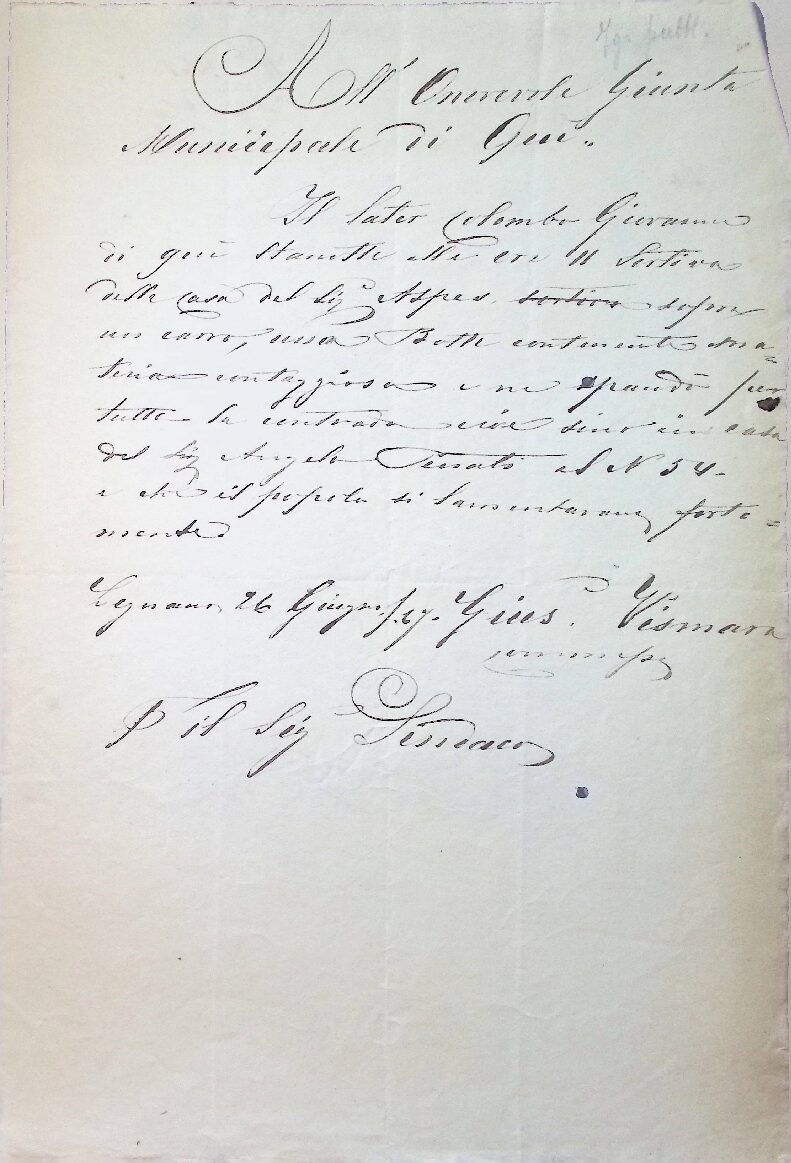 Ig. pubbl.
All' Onorevole Giunta
Municipale di Quì.
Il Sater Colombo Giovanni
di quì stanotte alle ore 11 sortiva
della casa del Sig.r Aspes, sortiva sopra
un carro, una Botte contenente ma=
teria contaggiosa e ne spandè per
tutta la contrada cioè sino in casa
del Sig Angelo al N 54.
e che il popolo si lamentarano forte=
mente
Legnano, 26 Giugno /67. Gius. Vismara
P il Sig Sindaco